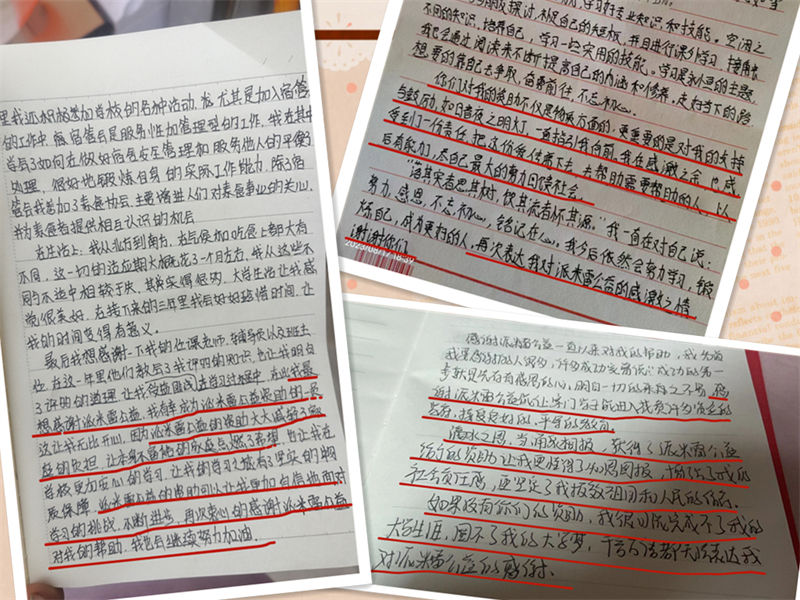 里我还积极参加学校的各种活动,尤其是加入宿管
的工作中,宿管会是服务性加管理型的工作,我在其中
学会了如何在做好宿舍安全管理和服务他人的平衡
处理,很好地锻炼自身的实际工作能力,除了宿
管会我参加了素食协会,主要增进人们对素食事业的关心,
并为素食者提供相互认识的机会
在生活上:我从北方到南方,在气候和吃食上都大有
不同,这一切的适应期大概花了一个月左右,我从这些不
同与不适中相较于快,其实实得很快,大学生活让我感
觉很美好,在接下来的三年里我会好好珍惜时间,让
我的时间变得有意义。
最后我想感谢一下我的任课老师,辅导员以及班主
任,在这一年里他们教会了我评的知识,也让我明白
了许多的道理,让我受益匪浅
想感谢派米雷公益,我有幸成为派米雷公益资助的一员
这让我无比开心,因为派米雷公益的资助大大减轻了家
庭的负担,让本来
学校更加安心的学习,让我的学习之旅有了坚实的物
质保障,派米雷公益的资助可以让我更加自信地面对
学习的挑战,不断进步,再次衷心的感谢派米雷公益
对我的帮助,我也会继续努力加油.
学习专业知识和技能。空闲之
不同的知识,培养自己,学习一些实用的技能。学习是永恒的主题,
我会通过阅读来不断提高自己的内涵和修养,走好当下的路
想要的靠自己去争取,奋勇前往,不忘初心。
你们对我的资助不仅是物质方面的,更重要的是对我的支持
与鼓励,如日暮夜之明灯,一直指引我向前。我在感激之余,也感
受到了一份责任,把这份爱传递下去,去帮助需要帮助的人,以
后有能力,尽自己最大的努力回馈社会。
“落其实者思其树,饮其流者怀其源。”我一直在对自己说:
努力,感恩,不忘初心,铭记在心。我今后依然会努力学习,锻
炼自己,成为更好的人,再次表达我对派米雷公益的感激之情
谢谢你们
2023/08/17 18:39
感谢派米雷公益一直以来对我的帮助,我知道
我要感谢的人很多,许多成功
感
谢派米雷公益
教育,接受良好的,平等的教育。
滴水之恩,当涌泉相报,获得了派米雷公益
给予的资助让我更懂得了知恩图报,增强了我的
社会责任感,更坚定了我报效祖国和人民的信念.
如果没有你们的资助,我很可能完成不了我的
大学生涯,圆不了我的大学梦,千言万语都无法表达我
对派米雷公益的感谢.